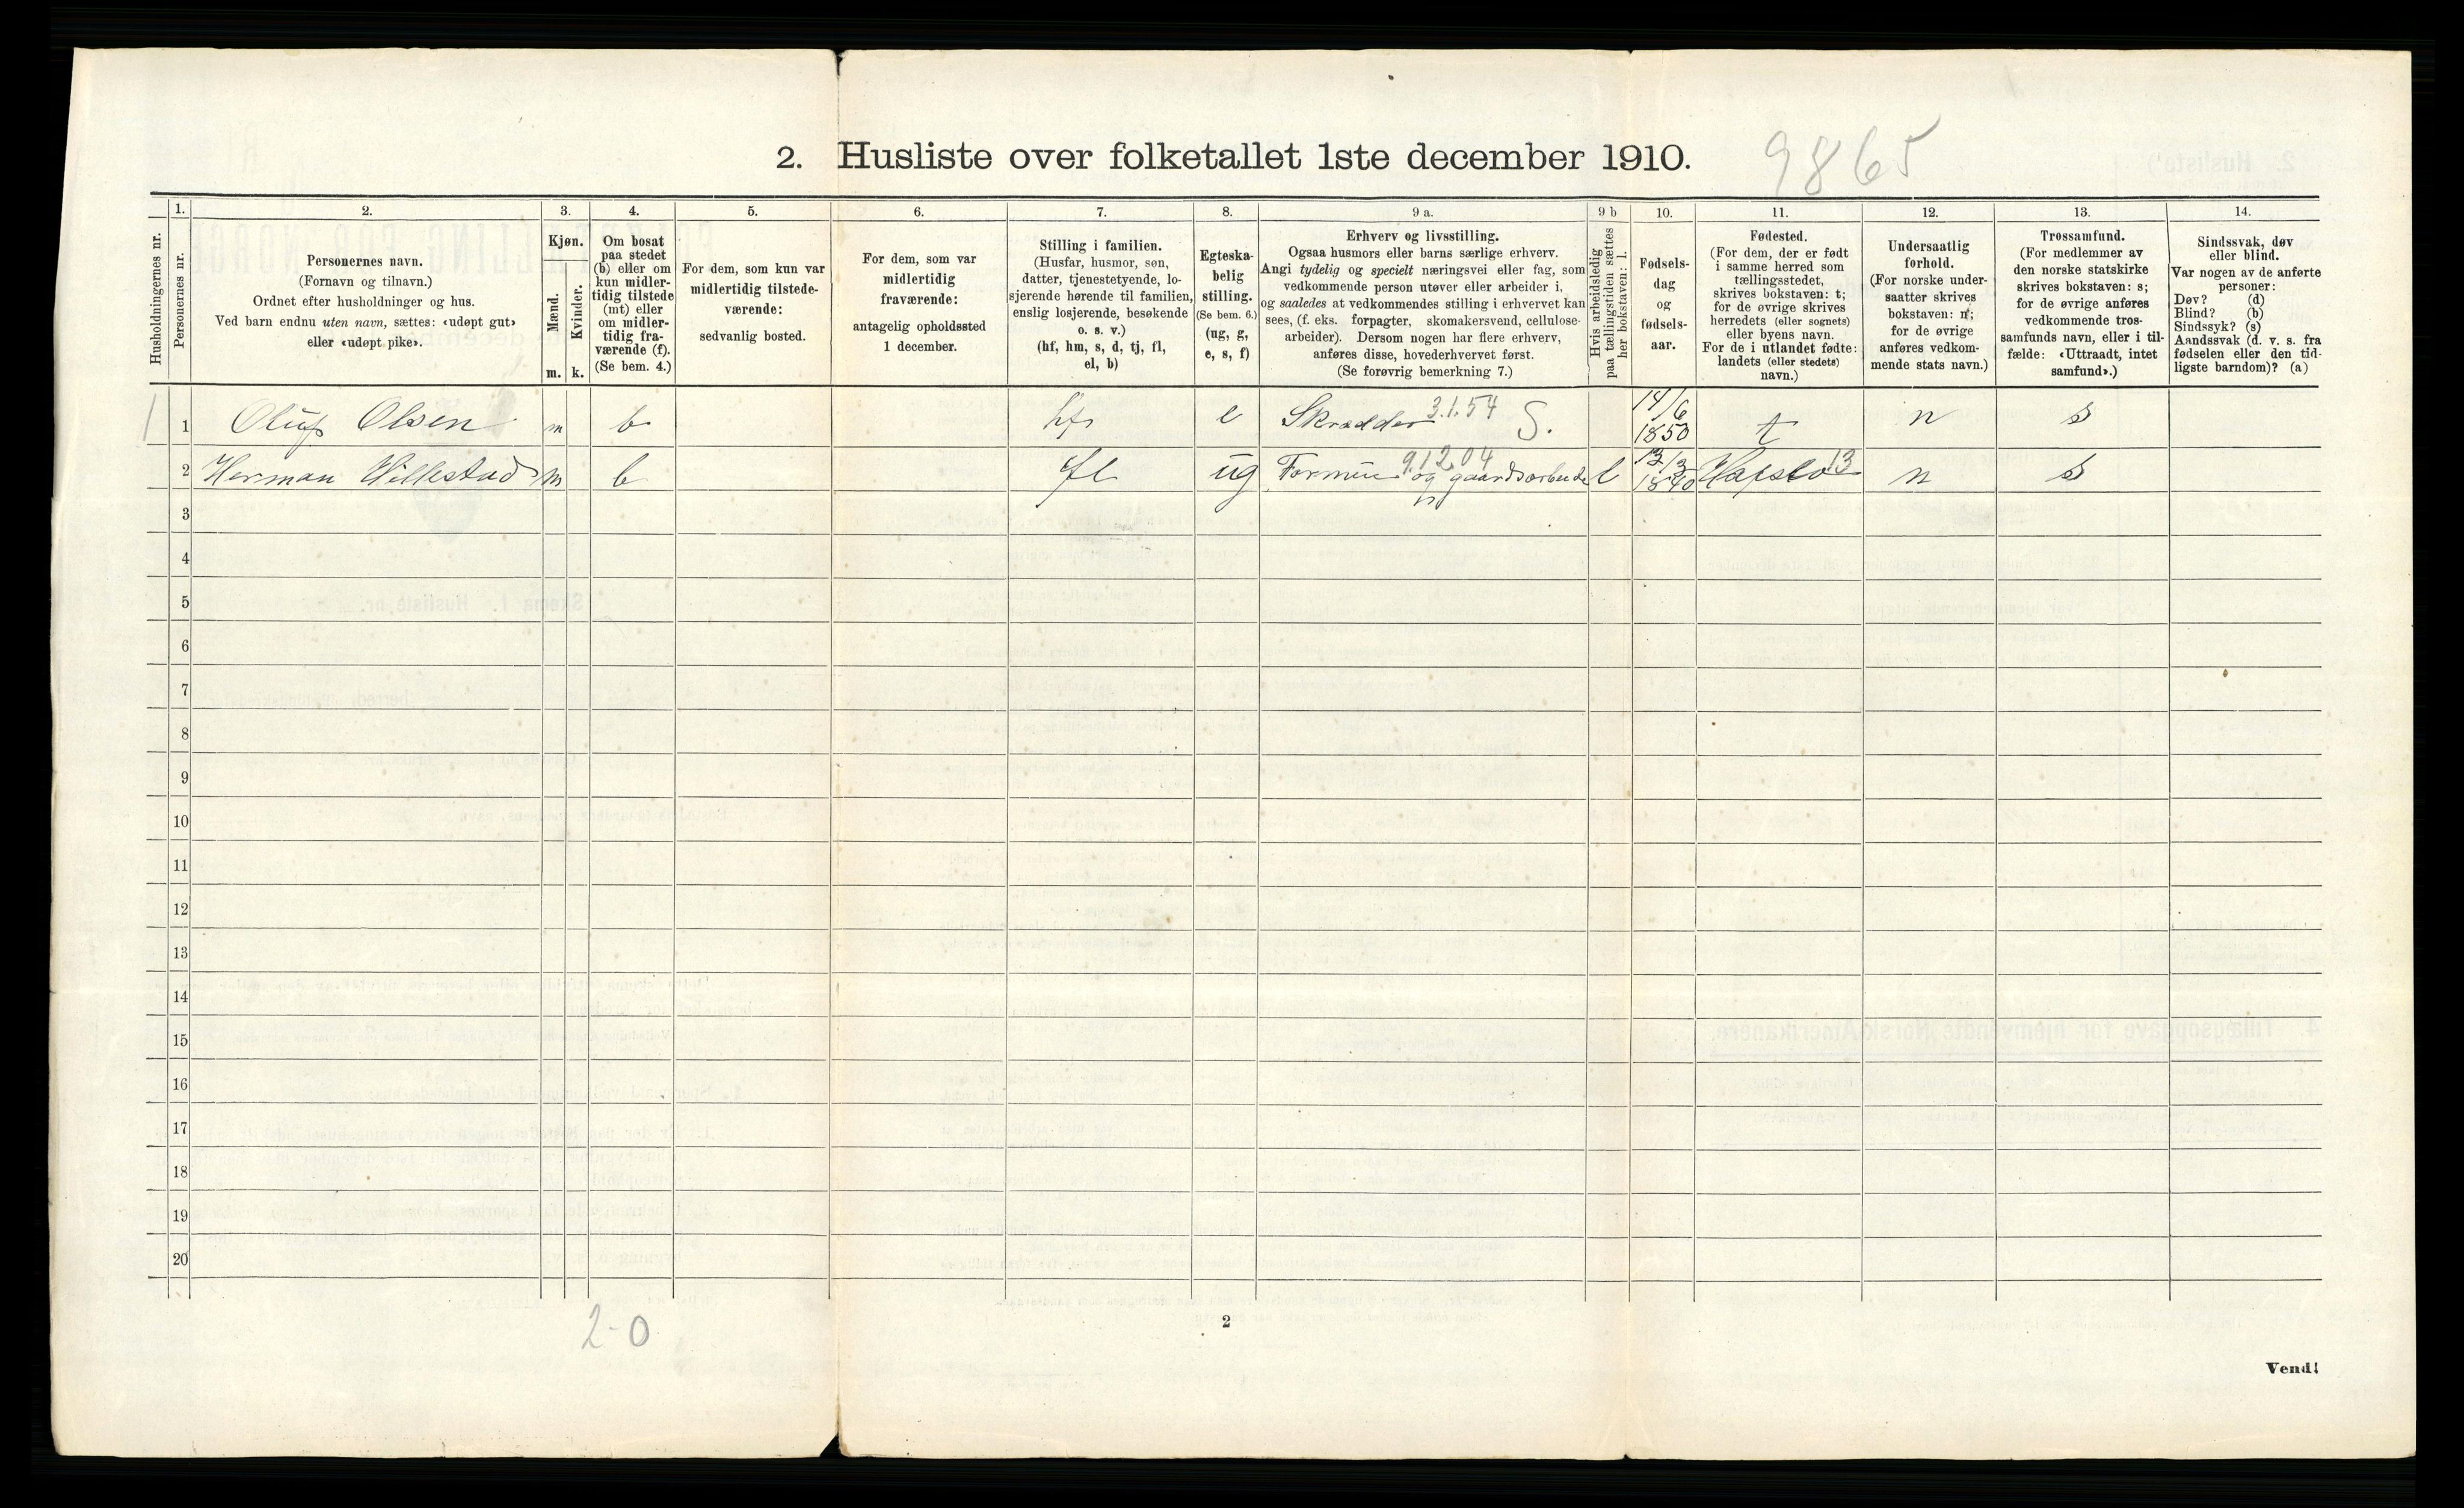 2. Husliste over folketallet 1ste december 1910.
9865
Husholdningernes nr.
1.
Personernes nr.
2.
Personernes navn.
(Fornavn og tilnavn.)
Ordnet efter husholdninger og hus.
Ved barn endnu uten navn, sættes: «udøpt gut»
eller «udøpt pike».
3.
Kjøn.
Mænd.
Kvinder.
m. k.
4.
Om bosat
paa stedet
(b) eller om
kun midler-
tidig tilstede
(mt) eller
om midler-
tidig fra-
værende (f).
(Se bem. 4.)
5.
For dem, som kun var
midlertidig tilstede-
værende:
sedvanlig bosted.
6.
For dem, som var
midlertidig
fraværende:
antagelig opholdssted
1 december.
7.
Stilling i familien.
(Husfar, husmor, søn,
datter, tjenestetyende, lo-
sjerende hørende til familien,
enslig losjerende, besøkende
o. s. v.)
(hf, hm, s, d, tj, fl,
el, b)
8.
Egteska-
belig
stilling.
(Se bem. 6.)
(ug, g,
e, s, f)
9 a.
Erhverv og livsstilling.
Ogsaa husmors eller barns særlige erhverv.
Angi tydelig og specielt næringsvei eller fag, som
vedkommende person utøver eller arbeider i,
og saaledes at vedkommendes stilling i erhvervet kan
sees, (f. eks. forpagter, skomakersvend, cellulose-
arbeider). Dersom nogen har flere erhverv,
anføres disse, hovederhvervet først.
(Se forøvrig bemerkning 7.)
9 b
Hvis arbeidsledig
paa tællingstiden sættes
her bokstaven: l.
10.
Fødsels-
dag
og
fødsels-
aar.
11.
Fødested.
(For dem, der er født
i samme herred som
tællingsstedet,
skrives bokstaven: t;
for de øvrige skrives
herredets (eller sognets)
eller byens navn.
For de i utlandet fødte:
landets (eller stedets)
navn.)
12.
Undersaatlig
forhold.
(For norske under-
saatter skrives
bokstaven: n;
for de øvrige
anføres vedkom-
mende stats navn.)
13.
Trossamfund.
(For medlemmer av
den norske statskirke
skrives bokstaven: s;
for de øvrige anføres
vedkommende tros-
samfunds navn, eller i til-
fælde: «Uttraadt, intet
samfund».)
14.
Sindssvak, døv
eller blind.
Var nogen av de anførte
personer:
Døv? (d)
Blind? (b)
Sindssyk? (s)
Aandssvak (d. v. s. fra
fødselen eller den tid-
ligste barndom)? (a)
1 1 Oluf Olsen m b hf e Skrædder 3.1.54 S. 14/6 1850 t n s
2 Herman Hillestad m b fl ug og gaardsarbeide 9.12.04 l 1840 Hafslo 13 n s
3
4
5
6
7
8
9
10
11
12
13
14
15
16
17
18
19
20
2-0
2
Vend!